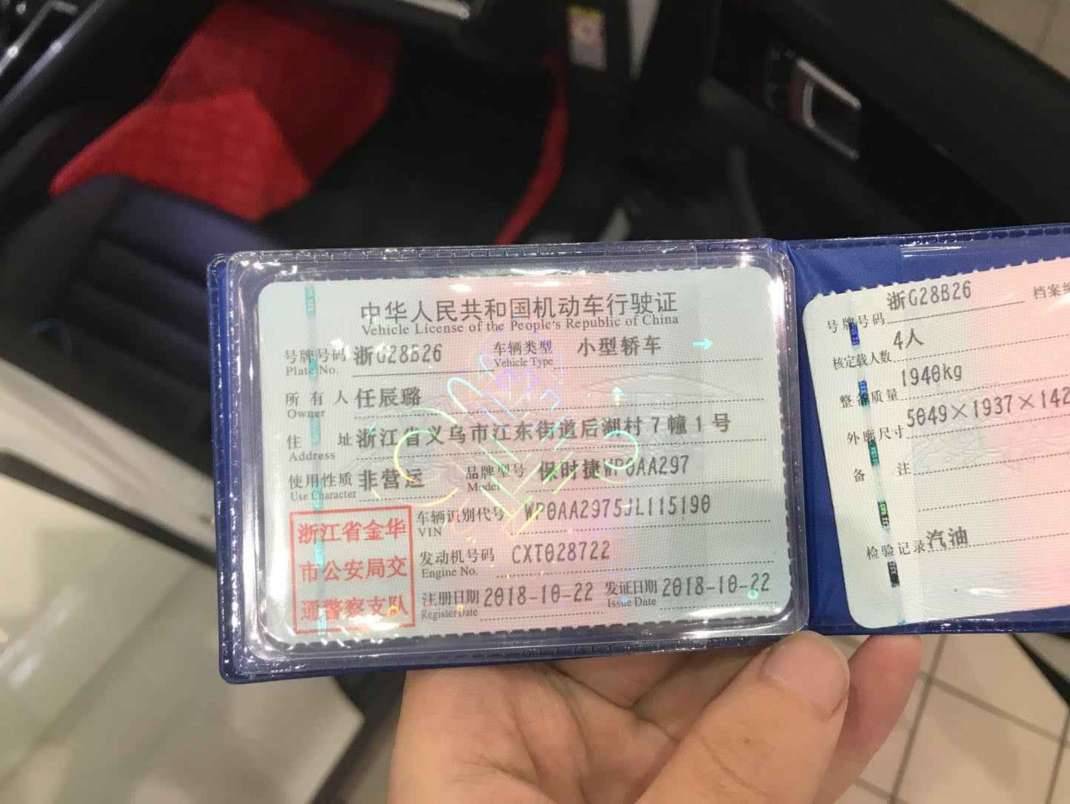 中华人民共和国机动车行驶证
Vehicle License of the People's Republic of China
号牌号码 浙G28B26 车辆类型 小型轿车
Plate No. Vehicle Type
所有人 任辰璐
Owner
住址 浙江省义乌市江东街道后湖村7幢1号
Address
使用性质 非营运 品牌型号 保时捷WP0AA297
Use Character Model
浙江省金华
市公安局交
通警察支队
车辆识别代号 WP0AA2975JL115190
VIN
发动机号码 CXT028722
Engine No.
注册日期 2018-10-22 发证日期 2018-10-22
Register Date Issue Date
号牌号码 浙G28B26 档案编
核定载人数 4人
整备质量 1940kg
外廓尺寸 5049×1937×142
备注
检验记录 汽油